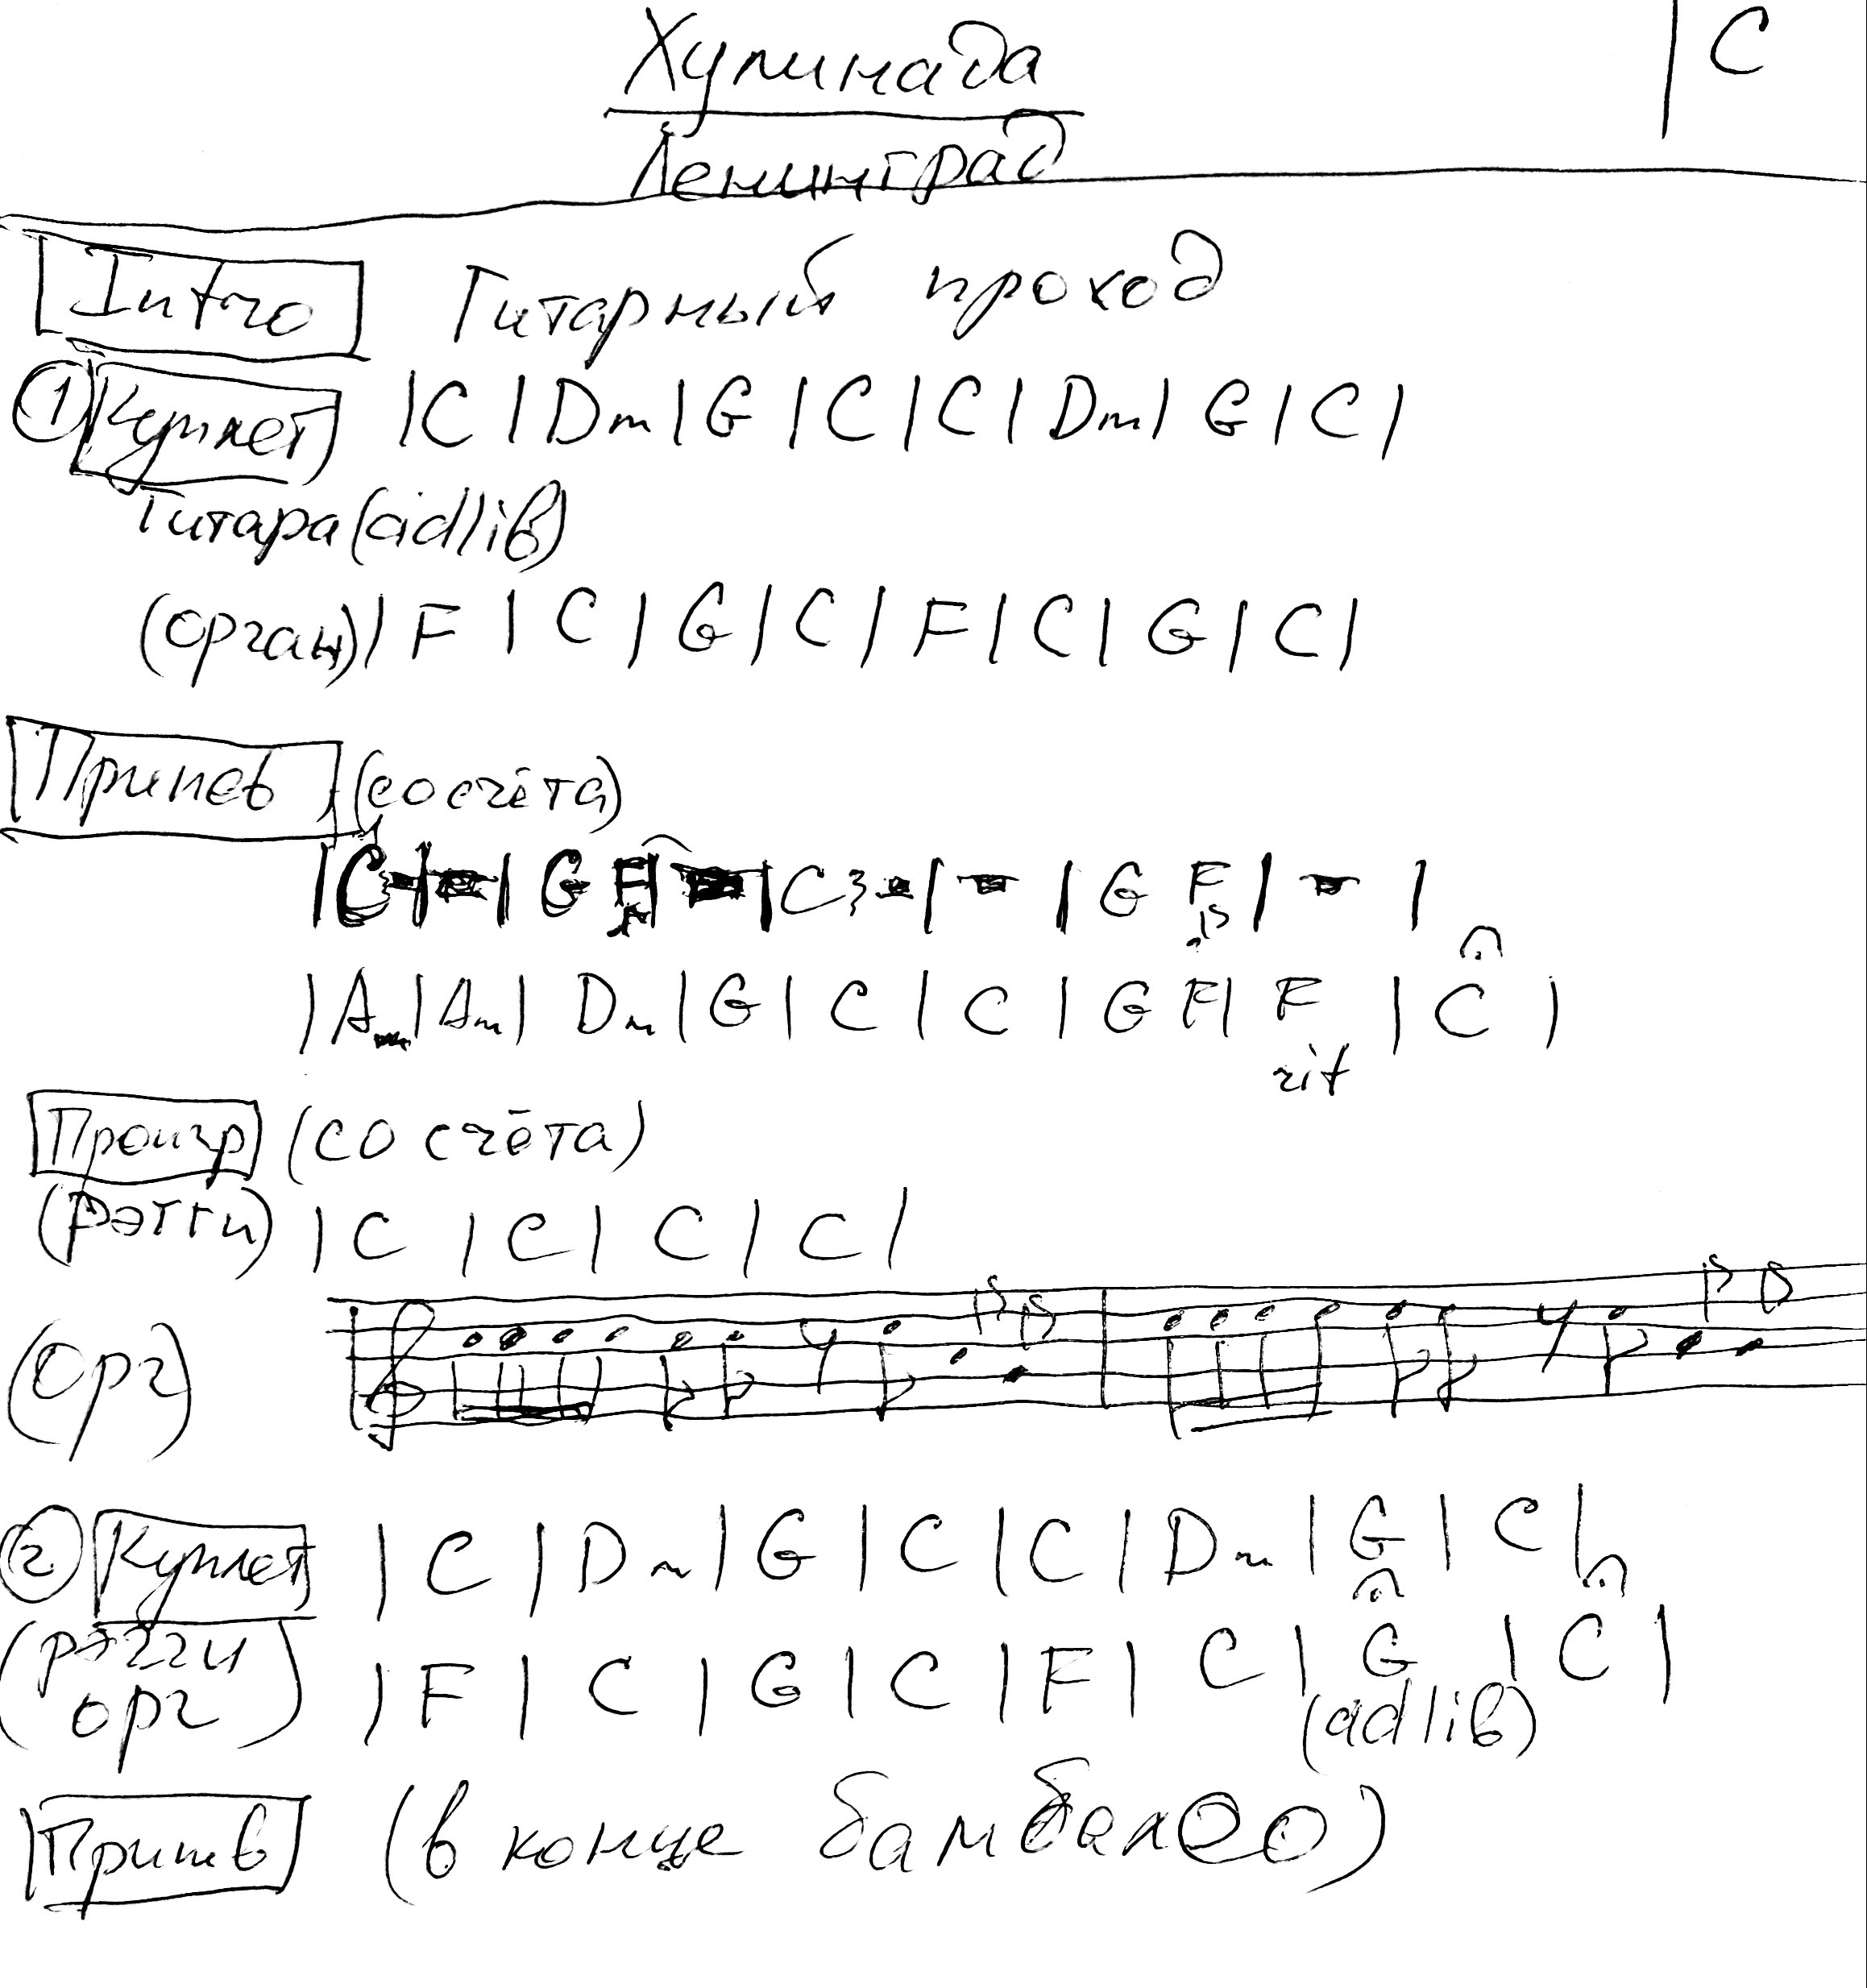 Хулинада
| C
Ленинград
Intro Гитарный проход
1 Куплет | C | Dm | G | C | C | Dm | G | C |
Гитара (ad lib)
(орган) | F | C | G | C | F | C | G | C |
Припев (со счёта)
| C | G F | C | G F |
| Am | Am | Dm | G | C | C | G F | F | C |
rit
Проигр (со счёта)
(рэгги) | C | C | C | C |
(орг)
2 Куплет | C | Dm | G | C | C | Dm | G | C |
(рэгги | F | C | G | C | F | C | G | C |
орг) (ad lib)
Припев (в конце бамбалео)